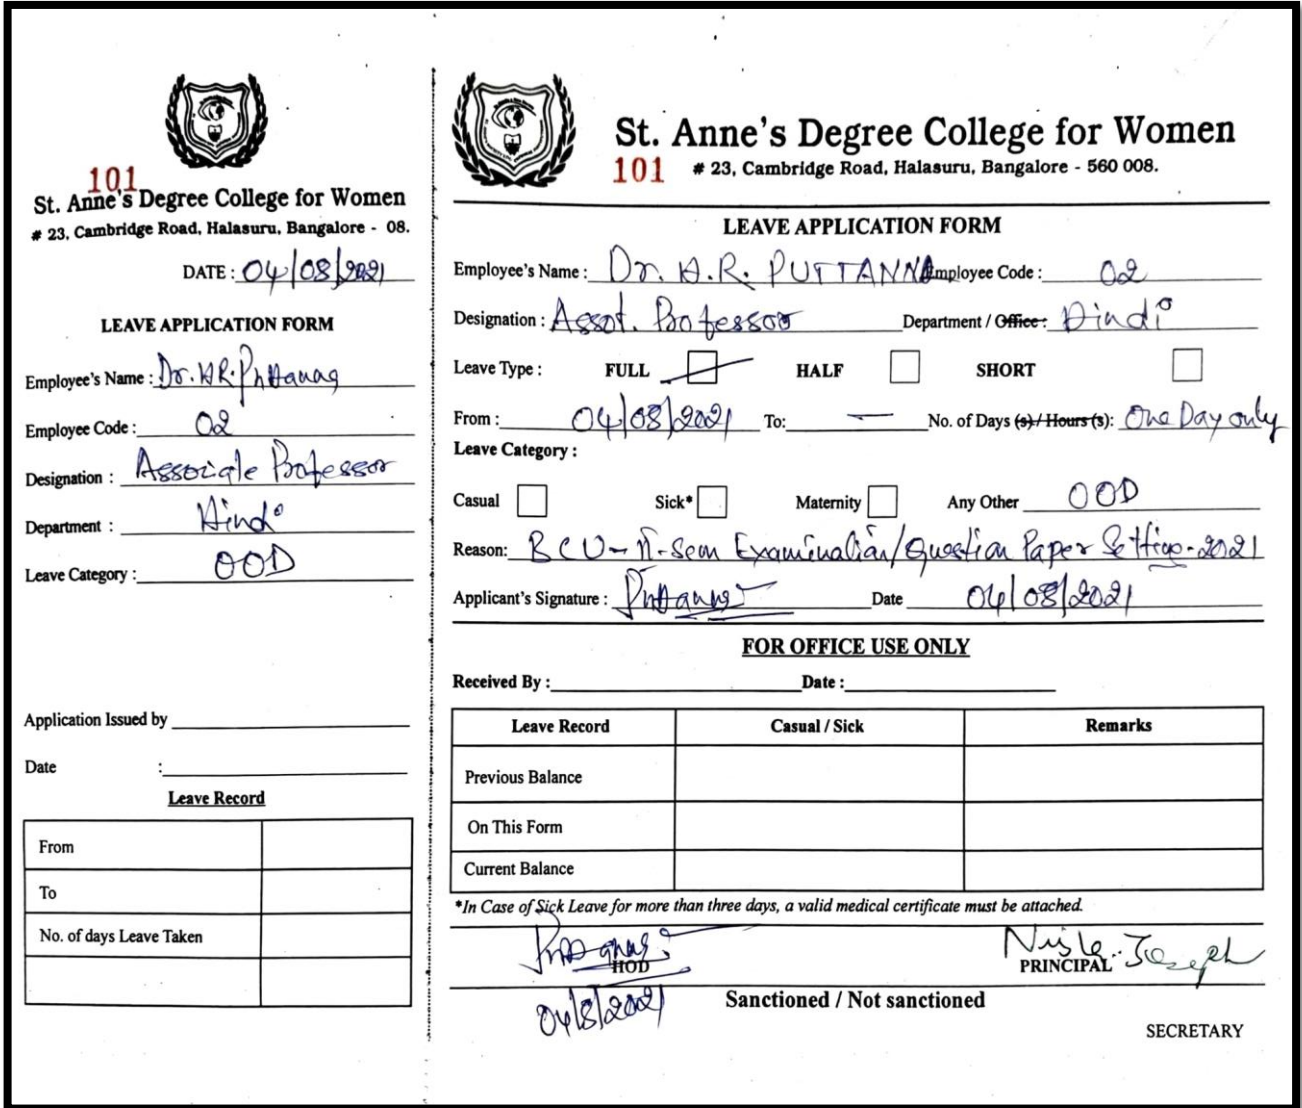 101
St. Anne's Degree College for Women
# 23, Cambridge Road, Halasuru, Bangalore - 08.
DATE : 04/08/2021
LEAVE APPLICATION FORM
Employee's Name : Dr. H.R.
Employee Code : 02
Designation : Associate Professor
Department : Hindi
Leave Category : OOD
Application Issued by
Date :
Leave Record
From
To
No. of days Leave Taken
St. Anne's Degree College for Women
101 # 23, Cambridge Road, Halasuru, Bangalore - 560 008.
LEAVE APPLICATION FORM
Employee's Name : Dr. H.R. PUTTANNA Employee Code : 02
Designation : Assot. Professor Department / Office : Hindi
Leave Type : FULL HALF SHORT
From : 04/08/2021 To: — No. of Days (s) / Hours (s): One Day only
Leave Category :
Casual Sick* Maternity Any Other OOD
Reason: BCU - II - Sem Examination/Question Paper Setting - 2021
Applicant's Signature : Date 04/08/2021
FOR OFFICE USE ONLY
Received By : Date :
Leave Record Casual / Sick Remarks
Previous Balance
On This Form
Current Balance
*In Case of Sick Leave for more than three days, a valid medical certificate must be attached.
HOD PRINCIPAL Joseph
04/8/2021 Sanctioned / Not sanctioned
SECRETARY